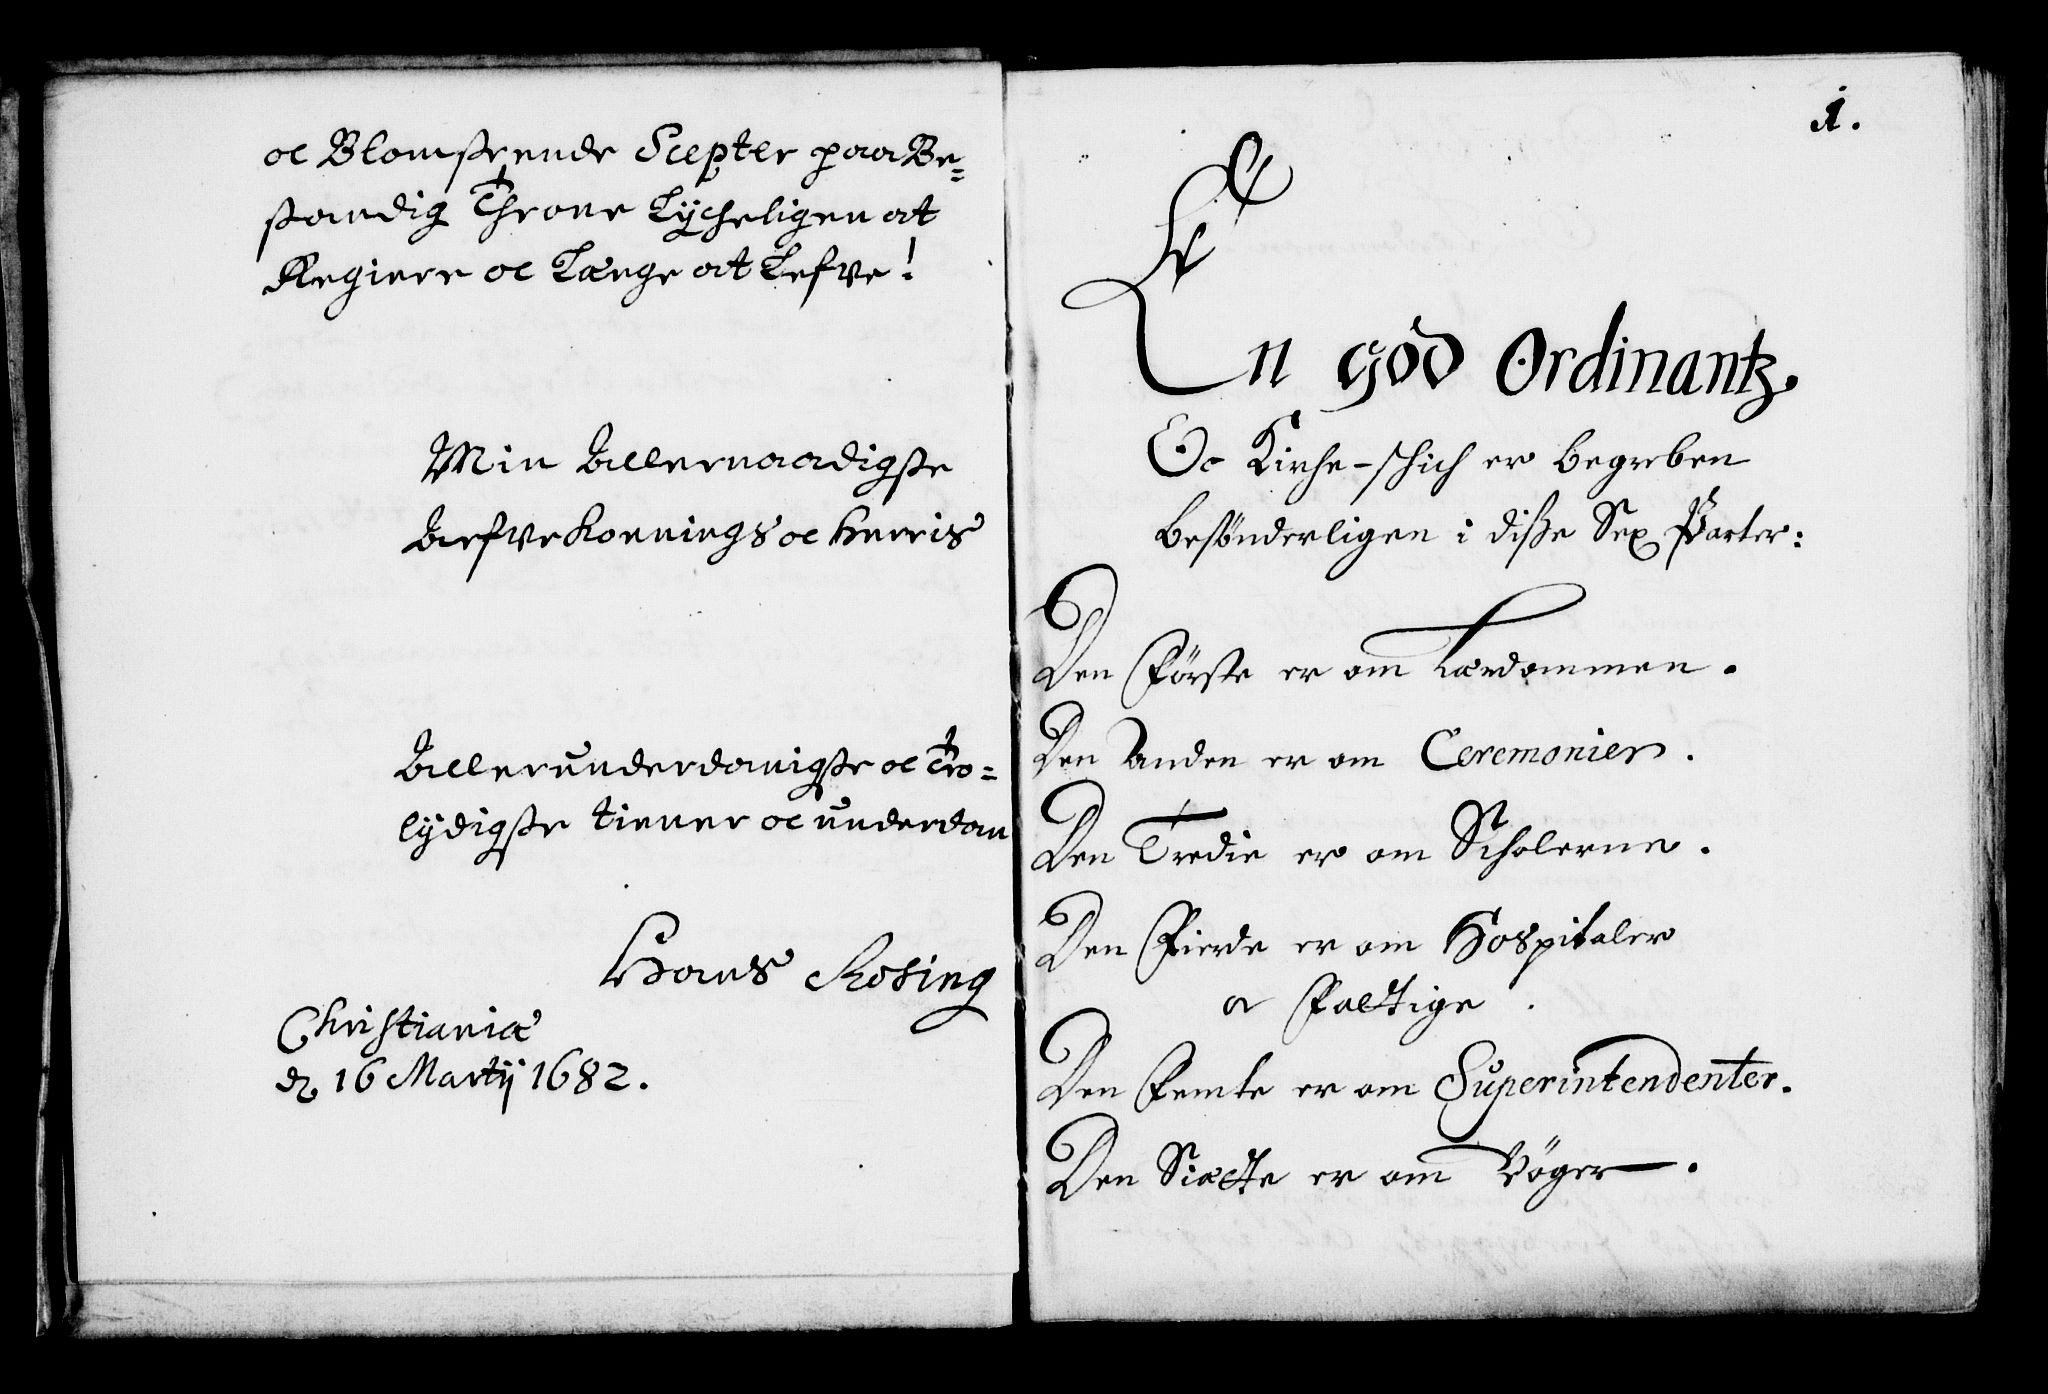 oc Blomstrende Scepter paa Be=
standig Throne Lycheligen at
Regiere oc Længe at Lefve!
Min Allernaadigste
Arfve Konnings oc Herris
Allerunderdanigste oc Tro=
lydigste tiener oc underdan
Hans Rosing
Christianiæ
d 16 Martij 1682.
1.
En god Ordinantz.
Oc Kirche-schich er begreben
besönderligen i diße Sex Parter:
Den Förste er om Lærdommen.
Den Anden er om Ceremonier.
Den Tredie er om Scholerne.
Den Fierde er om Hospitaler
oc Fattige.
Den Femte er om Superintendenter.
Den Siætte er om Bøger.